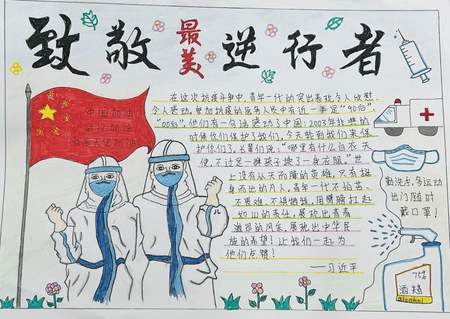 致敬最美逆行者
在这次抗疫斗争中，青年一代的突出表现令人欣慰
令人感动。参加抗疫的医务人员中有近一半是“90后”、
“00后”，他们有一句话感动了中国：2003年非典的
时候你们保护了我们，今天轮到我们来保
护你们了。长辈们说：“哪里有什么白衣天
使，不过是一群孩子换了一身衣服。”世
上没有从天而降的英雄，只有挺
身而出的凡人。青年一代不怕苦
不畏难、不惧牺牲，用臂膀扛起
如山的责任，展现出青春
激昂的风采，展现出中华民
族的希望！让我们一起为
他们点赞！
——习近平
勤洗手、多运动
出门随时
戴口罩！
75%
酒精
alcohol